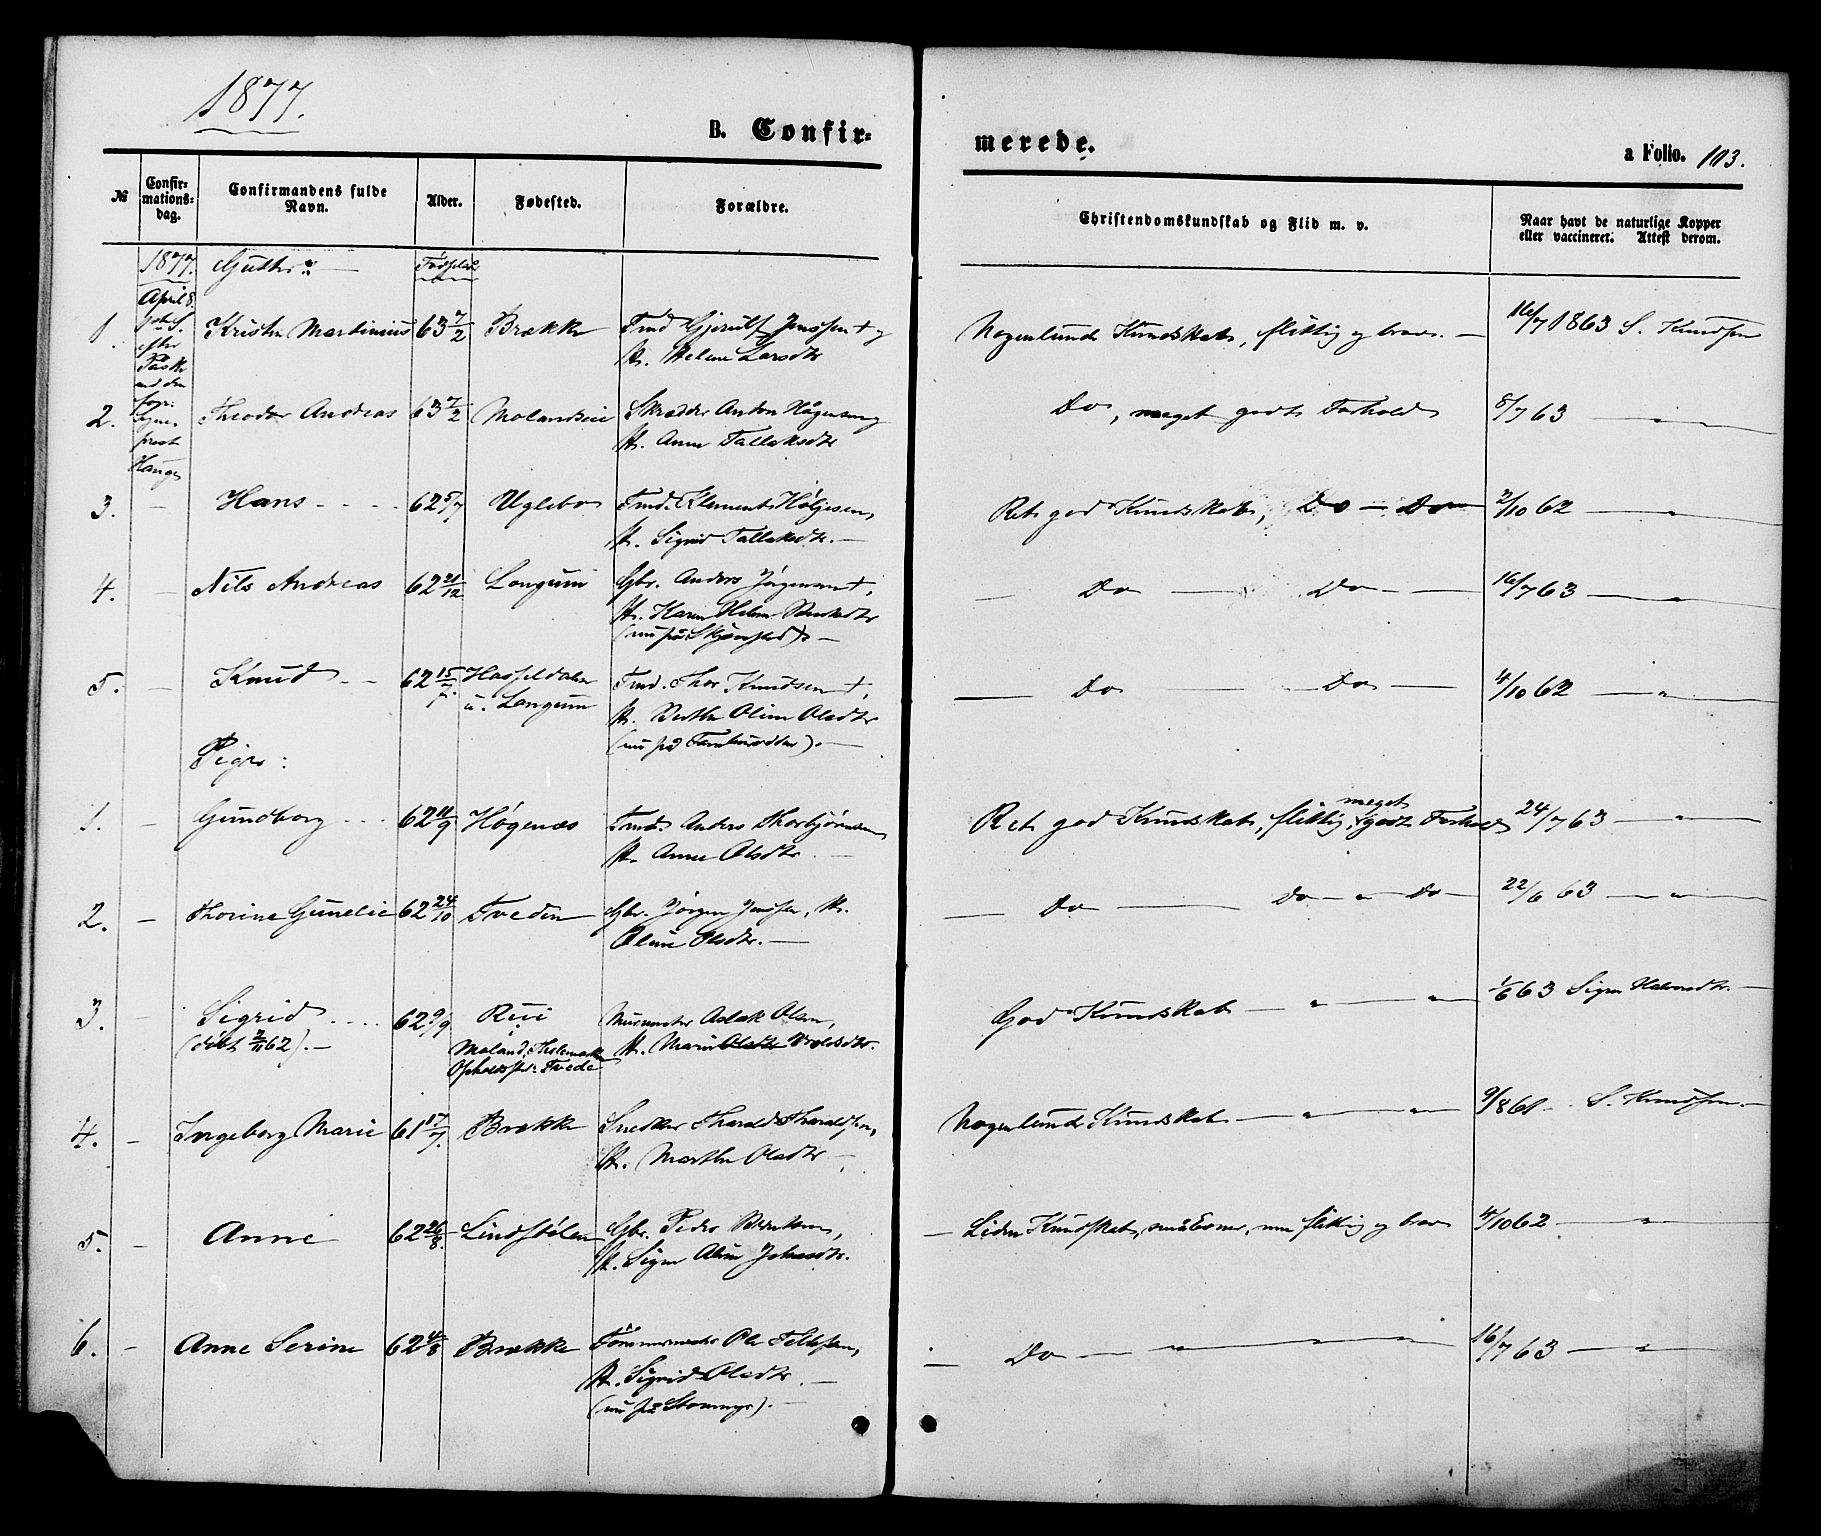 1877.
B. Confir-
merede.
a Folio. 103.
№
Confir-
mations-
dag.
Confirmandens fulde
Navn.
Alder.
Fødested.
Forældre.
Christendomskundskab og Flid m. v.
Naar havt de naturlige Kopper
eller vaccineret. Attest derom.
1877.
April 8.
1ste S.
efter
Paaske
Gutter:
1. Kristen Martinius 63 7/2 Brække Tmd. Gjerulf Jenssen † og
H. Helene Larsdtr
Nogenlunde Kundskab, flittig og brav. — 16/7 1863 S. Knudsen
2. Theodor Andreas 63 7/2 Molandseie Skrædder Anton
H. Anne Tallaksdtr
Do, meget godt Forhold 8/7 63 — „
3. — Hans 62 5/7 Uglebo Tmd. Klement Høljesen,
H. Sigrid Tallaksdtr. —
Ret god Kundskab, Do — Do 2/10 62 — „
4. — Nils Andreas 62 21/12 Longum Gbr. Anders Jørgensen †,
H. Karen Helene
— Do — Do — 16/7 63 — „
5. — Knud 62 15/7. Hasseldalen
u. Longum
Tmd. Thor Knudsen †,
H. Berthe Oline Olsdtr
— Do — Do — 4/10 62 — „
Piger:
1. — Gundborg 62 11/9 Høgenæs Tmd. Anders Thorbjørnsen
H. Anne Olsdtr. —
Ret god Kundskab, flittig, meget godt Forhold 24/7 63 — „
2. — Thorine Gunelie 62 24/10 Tveden Gbr. Jørgen Jenssen, H.
Oline Olsdtr. —
— Do — Do — „ — Do — 22/6 63 — „
3. — Sigrid 62 9/9 Rui
(døbt 2/11 62). —
i
Moland, Thelemarken
Opholdssted: Tvede
Murmester Aslak Olsen,
H. Marie
God Kundskab — „ — „ 1/6 63 Signe Halvorsdtr. —
4. — Ingeborg Marie 61 17/7. Brække Snedker Tharald Tharaldsen,
H. Marthe Olsdtr —
Nogenlunde Kundskab — „ — „ 9/8 61 — S. Knudsen. —
5. — Anne 62 26/8. Lindstølen Gbr. Peder
H. Signe Aline
— Liden Kundskab, smaa Evner, men flittig og brav 4/10 62 — „
6. — Anne Serine 62 4/8 Brække Tømmermester Ole Tellefsen,
H. Sigrid Olsdtr. —
— Do — „ — „ — „ 16/7 63 — „